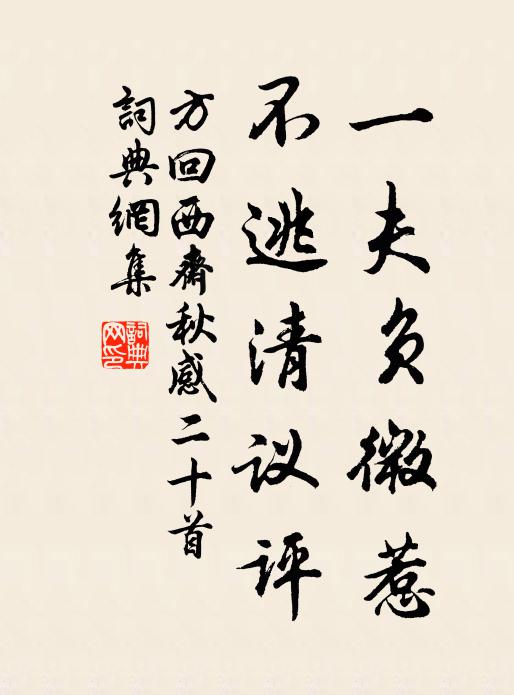 一夫负微惹
不逃清议评
方回西斋秋感二十首
詞典網集
詞典網印